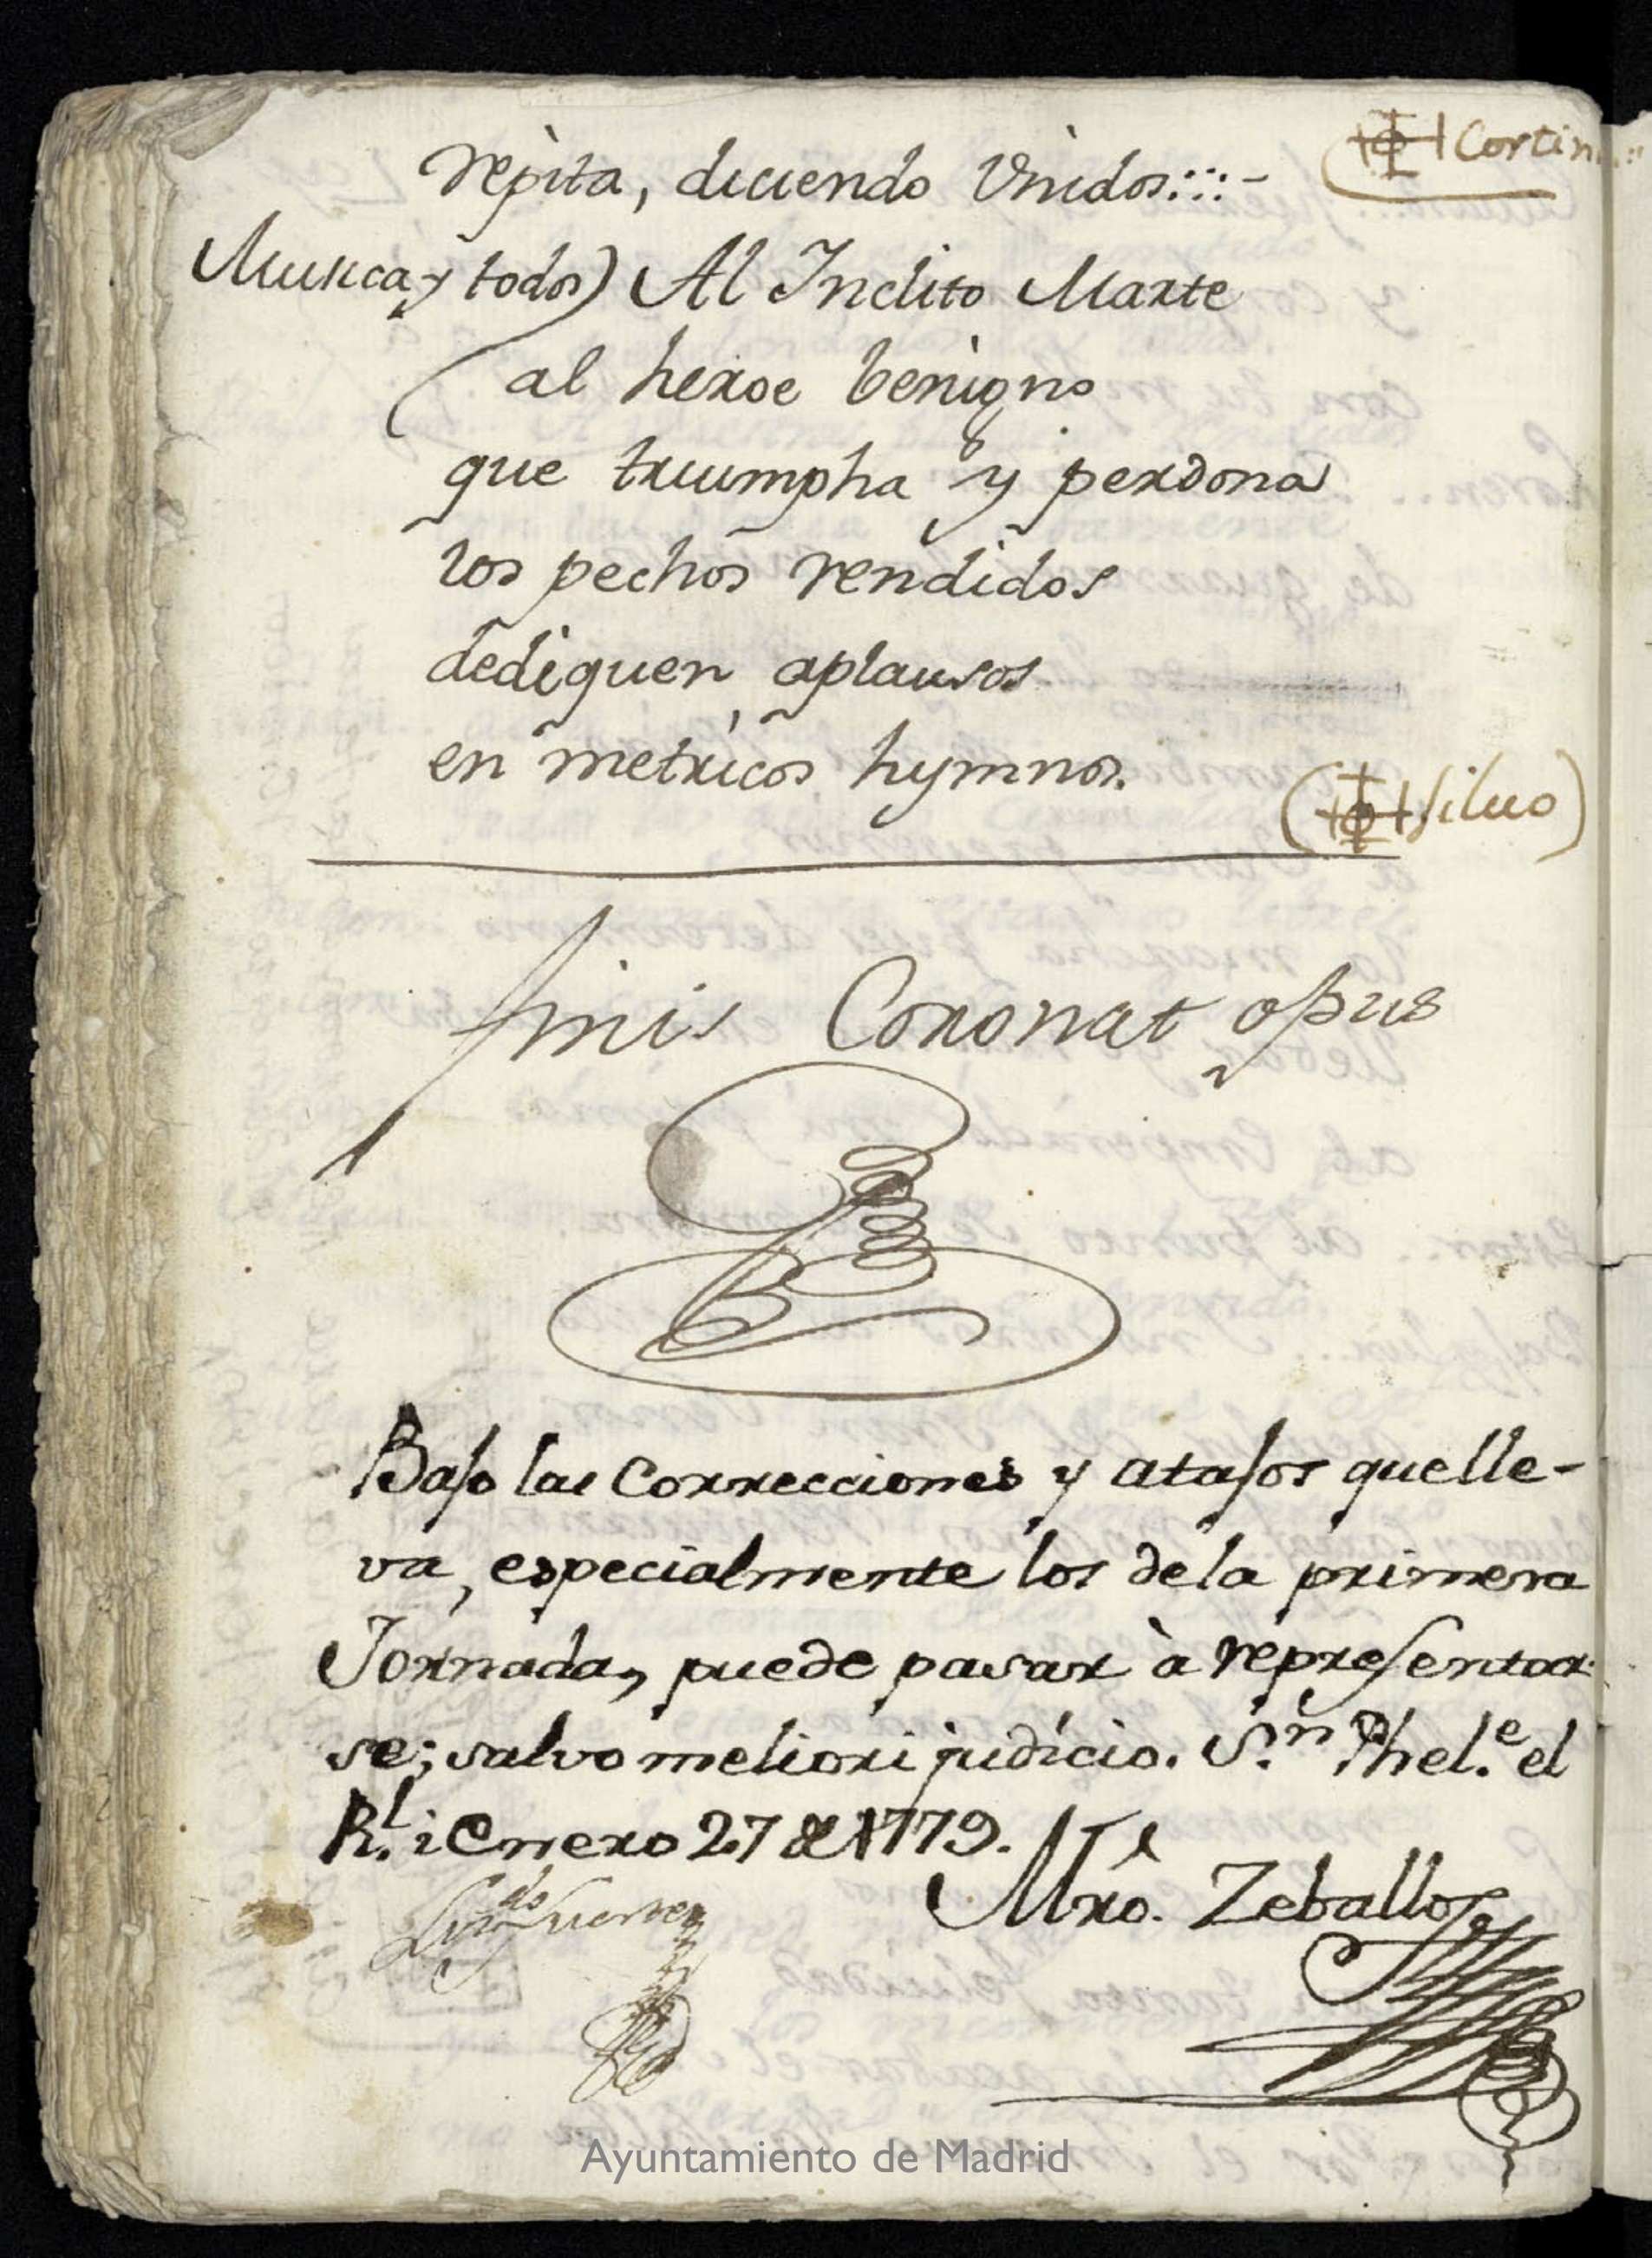 repita, diciendo Vnidos:::-
Cortin
Musica, y todos) Al Inclito Marte
al heroe benigno
que triumpha y perdona
los pechos rendidos
dediquen aplausos
en metricos hymnos.
silvo)
finis Coronat opus
Bajo las Correcciones y atajos quelle-
va, especialmente los dela primera
Jornada, puede pasar à representar
se; salvo meliori judicio. S.n Phel.e el
R.l i Enero 27 de 1779.
Mro. Zeballos
Ayuntamiento de Madrid